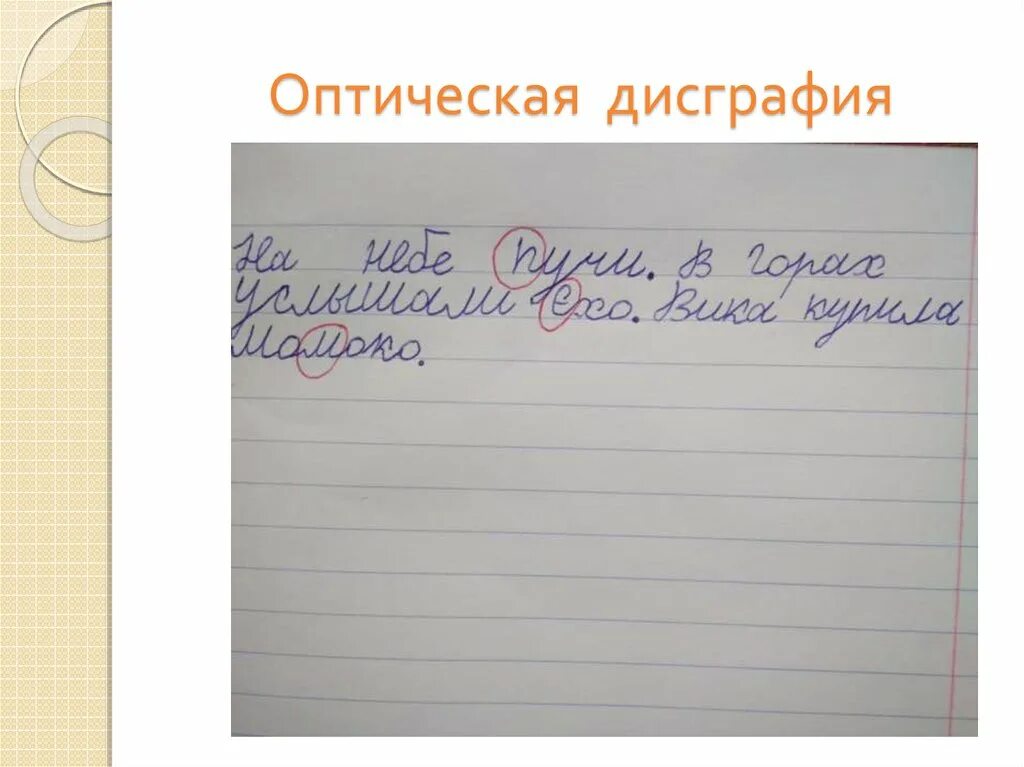 Оптическая дисграфия
На небе пучи. В горах
услышами єхо. Вика купила
момоко.